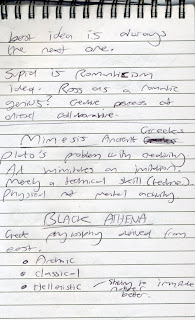 best idea is always
the next one.
is Romanticism
idea. Ross as a romantic
genius? Creative process is
often collaborative.
Mimesis Ancient Greeks
Plato's problem with creativity
Art imitates an imitation.
Merely a technical skill (techne).
Physical not mental activity
BLACK ATHENA
Greek philosophy derived from
east.
• Archaic
• Classical
• Hellenistic / to imitate
nature
better.